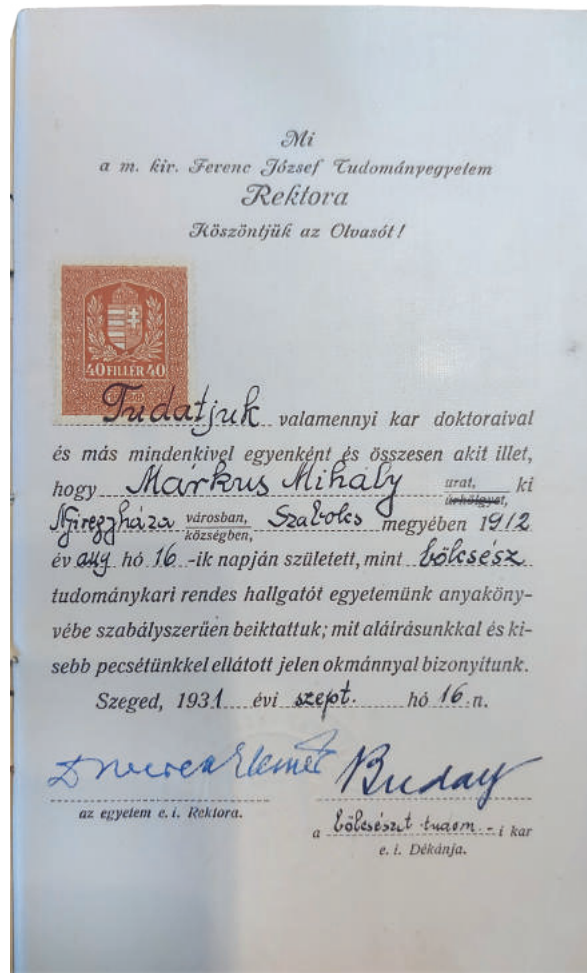 Mi
a m. kir. Ferenc József Tudományegyetem
Rektora
Köszöntjük az Olvasót!
40 FILLÉR 40
Tudatjuk valamennyi kar doktoraival
és más mindenkivel egyenként és összesen akit illet,
hogy Márkus Mihály urat, úrhölgyet, ki
Nyiregyháza városban, községben, Szabolcs megyében 1912
év aug hó 16 -ik napján született, mint bölcsész
tudománykari rendes hallgatót egyetemünk anyaköny-
vébe szabályszerűen beiktattuk; mit aláírásunkkal és ki-
sebb pecsétünkkel ellátott jelen okmánnyal bizonyítunk.
Szeged, 1931 évi szept. hó 16.n.
Buday
az egyetem e. i. Rektora.
a bölcsészet tudom. - i kar
e. i. Dékánja.